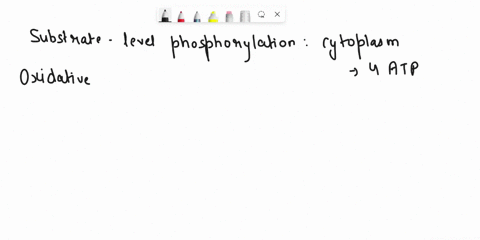 Substrate - level phosphorylation : cytoplasm
→ 4 ATP
Oxidative